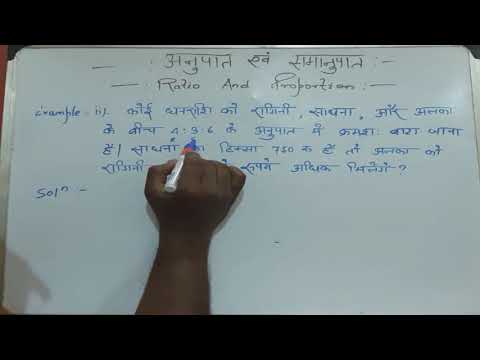 अनुपात एवं समानुपात :-
Ratio And Proportion :-
Example :- ii). कोई धनराशि को रागिनी, साधना, और अलका
के बीच 4:3:6 के अनुपात में क्रमशः बाटा जाता
है। साधना का हिस्सा 750 रु है तो अलका को
रागिनी रुपये अधिक मिलेंगे ?
Solⁿ -